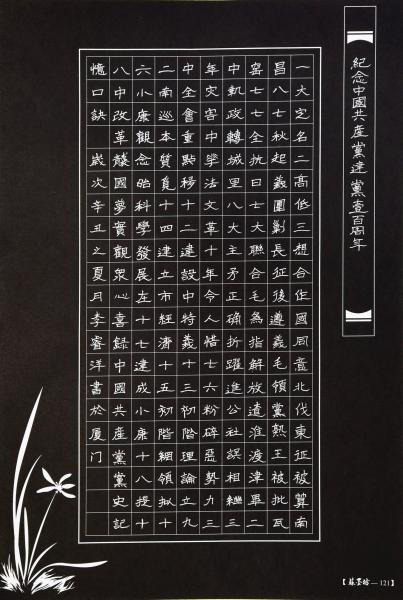 紀念中國共產黨建黨壹百周年
一大定名二高低三想合作國同意北伐東征被算南
昌八七秋起義圍剿長征後遵義毛領黨熟王被批瓦
窑七七全抗日七大聯合毛為指解放遣淮渡津畢二
中執政轉城里八大主矛正确折躍進公社誤相繼三
年灾害中學法文革十年令人惜七六粉碎惡勢力三
中全會重點移十二建設中特義十三初階理論立九
二南巡本質負十四建立市經濟十五初階綱領拟十
六小康觀念昭科學發展在十七建成小康十八提十
八中改革髓國夢實觀眾心喜録中國共產黨黨史記
憶口訣 歲次辛丑之夏月李睿洋書於厦门
【蘇墨坊—121】